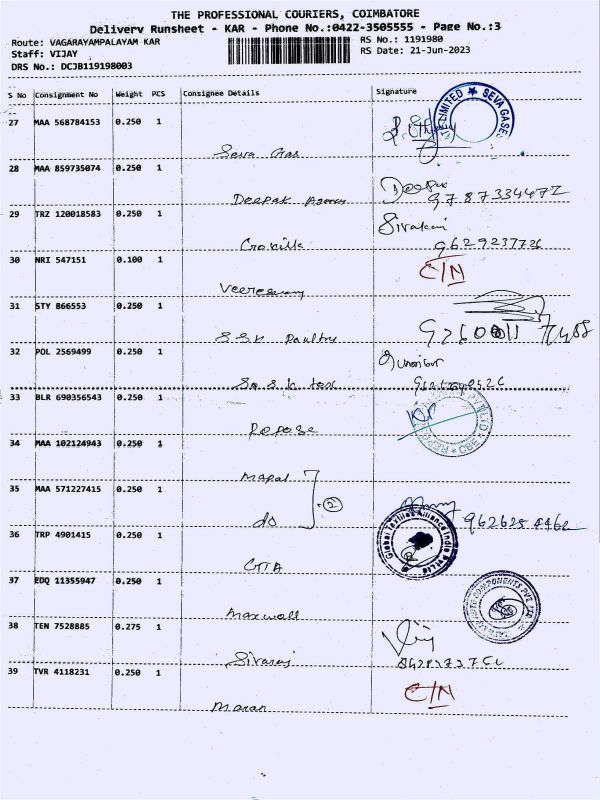 THE PROFESSIONAL COURIERS, COIMBATORE
Delivery Runsheet - KAR - Phone No.:0422-3505555 - Page No.:3
Route: VAGARAYAMPALAYAM KAR
RS No.: 1191980
Staff: VIJAY
RS Date: 21-Jun-2023
DRS No.: DCJB119198003
S No Consignment No Weight PCS Consignee Details Signature
27 MAA 568784153 0.250 1
LIMITED ★ SEVA GASES
Seva Gas
28 MAA 859735074 0.250 1
Deepak
Deepak Agency 9787334472
29 TRZ 120018583 0.250 1
Sivakani
9629237726
30 NRI 547151 0.100 1
C/N
Veereswary
31 STY 866553 0.250 1
S.S.K Poultry
32 POL 2569499 0.250 1
33 BLR 690356543 0.250 1
Repose
34 MAA 102124943 0.250 1
Mapal
35 MAA 571227415 0.250 1
do 2
Global Textiles Alliance India Pvt Ltd
36 TRP 4901415 0.250 1
GTA
37 EDQ 11355947 0.250 1
COMPONENTS PVT LTD
Maxwell
38 TEN 7528885 0.275 1
Sivaraj
39 TVR 4118231 0.250 1
C/N
Maran